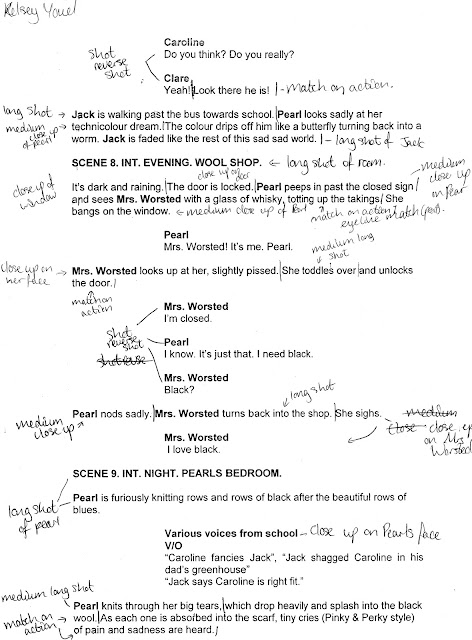 Kelsey
Caroline
Do you think? Do you really?
shot reverse shot
Clare
Yeah! Look there he is! match on action.
long shot → Jack is walking past the bus towards school. Pearl looks sadly at her
medium close up of pearl → technicolour dream. The colour drips off him like a butterfly turning back into a
worm. Jack is faded like the rest of this sad sad world. long shot of Jack
SCENE 8. INT. EVENING. WOOL SHOP. ← long shot of room.
close up on door
close up of window
medium close up on Pearl
It's dark and raining. The door is locked. Pearl peeps in past the closed sign
and sees Mrs. Worsted with a glass of whisky, totting up the takings. She
bangs on the window. ← medium close up of Pearl match on action eyeline match (pearl).
Pearl
Mrs. Worsted! It's me. Pearl.
medium long shot
close up on her face → Mrs. Worsted looks up at her, slightly pissed. She toddles over and unlocks
the door.
match on action
Mrs. Worsted
I'm closed.
shot reverse shot
Pearl
I know. It's just that. I need black.
Mrs. Worsted
Black?
long shot
Pearl nods sadly. Mrs. Worsted turns back into the shop. She sighs.
medium close up
medium close close up on Mrs Worsted
Mrs. Worsted
I love black.
SCENE 9. INT. NIGHT. PEARLS BEDROOM.
Pearl is furiously knitting rows and rows of black after the beautiful rows of
blues.
long shot of pearl
Various voices from school – Close up on Pearls face
V/O
“Caroline fancies Jack”, “Jack shagged Caroline in his
dad's greenhouse”
“Jack says Caroline is right fit.”
medium long shot
Pearl knits through her big tears, which drop heavily and splash into the black
match on action
wool. As each one is absorbed into the scarf, tiny cries (Pinky & Perky style)
of pain and sadness are heard.